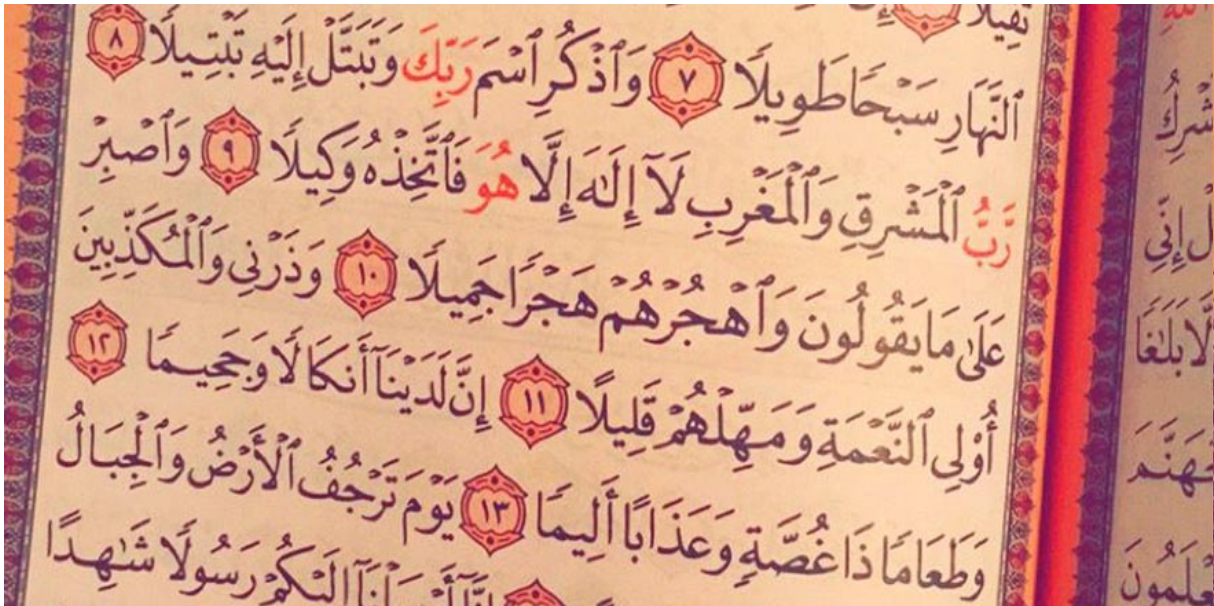 ثَقِيلًا
ٱلنَّهَارِ سَبْحًا طَوِيلًا ٧ وَٱذْكُرِ ٱسْمَ رَبِّكَ وَتَبَتَّلْ إِلَيْهِ تَبْتِيلًا ٨
رَّبُّ ٱلْمَشْرِقِ وَٱلْمَغْرِبِ لَآ إِلَٰهَ إِلَّا هُوَ فَٱتَّخِذْهُ وَكِيلًا ٩ وَٱصْبِرْ
عَلَىٰ مَا يَقُولُونَ وَٱهْجُرْهُمْ هَجْرًا جَمِيلًا ١٠ وَذَرْنِى وَٱلْمُكَذِّبِينَ
أُو۟لِى ٱلنَّعْمَةِ وَمَهِّلْهُمْ قَلِيلًا ١١ إِنَّ لَدَيْنَآ أَنكَالًا وَجَحِيمًا ١٢
وَطَعَامًا ذَا غُصَّةٍ وَعَذَابًا أَلِيمًا ١٣ يَوْمَ تَرْجُفُ ٱلْأَرْضُ وَٱلْجِبَالُ
إِنَّآ أَرْسَلْنَآ إِلَيْكُمْ رَسُولًا شَٰهِدًا
إِنِّى
بَلَٰغًا